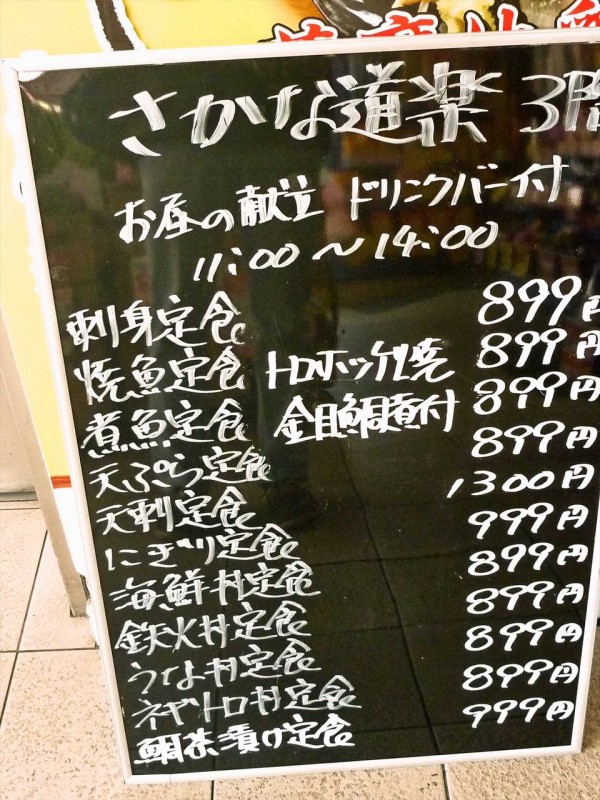 さかな道楽 3階
お昼の献立 ドリンクバー付
11:00～14:00
刺身定食 899円
焼魚定食 トロホッケ焼 899円
煮魚定食 金目鯛煮付 899円
天ぷら定食 899円
天刺定食 1300円
にぎり定食 999円
海鮮丼定食 899円
鉄火丼定食 899円
うな丼定食 899円
ネギトロ丼定食 899円
鯛茶漬け定食 999円